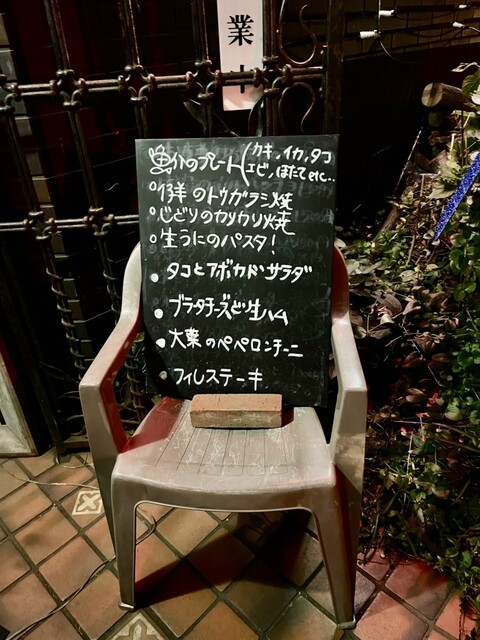 業中
魚介のプレート(カキ,イカ,タコ
エビ,ほたてetc...
仔羊のトウガラシ焼
じどりのカリカリ焼
生うにのパスタ!
タコとアボカドサラダ
ブラタチーズと生ハム
大葉のペペロンチーニ
フィレステーキ